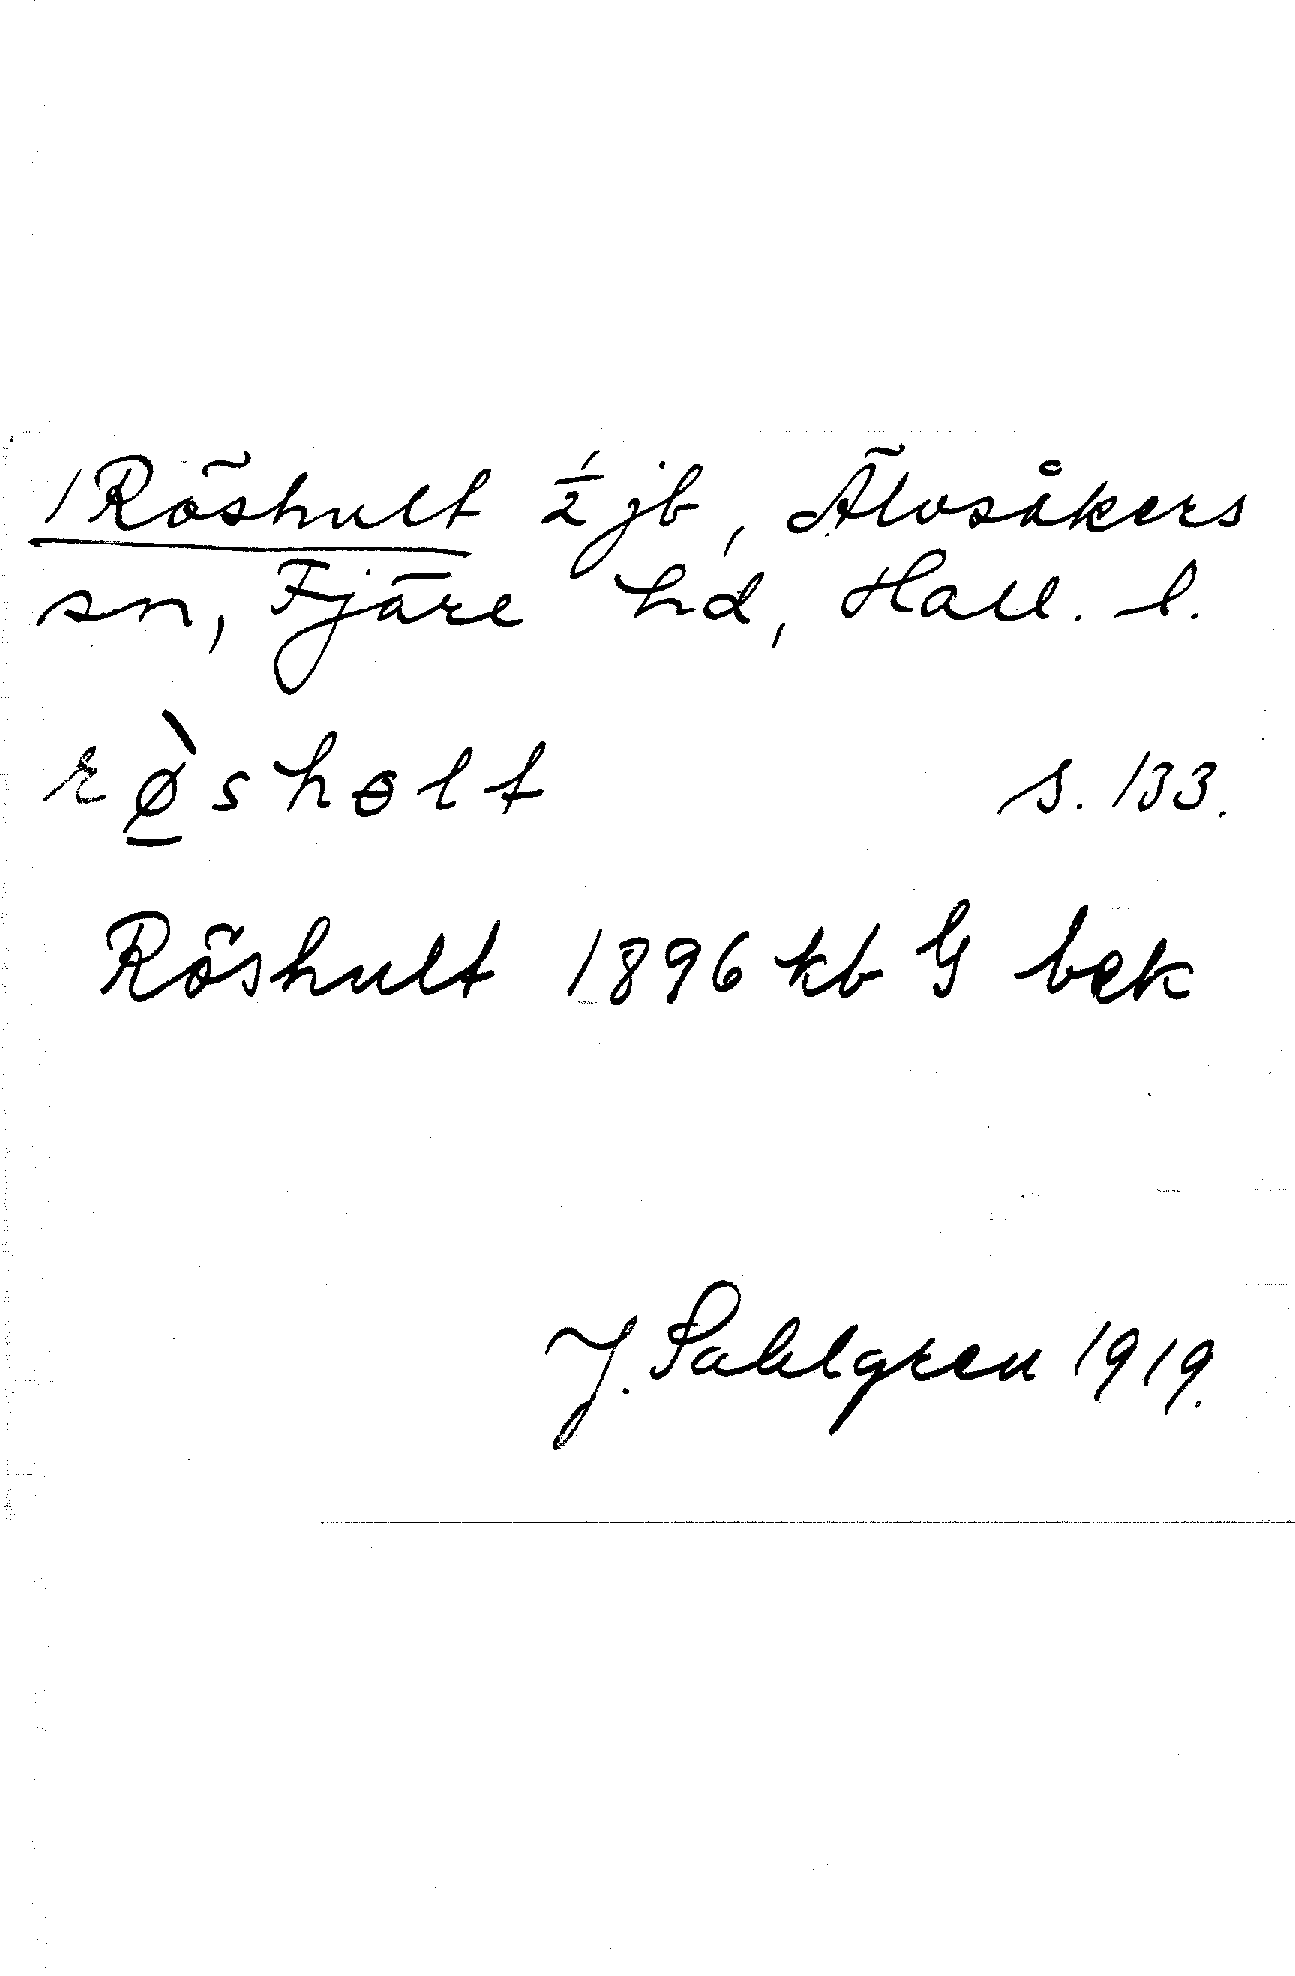 1 Röshult ½ jb, Älvsåkers
sn, Fjäre hd, Hall. l.
rø̀shɵlt s. 133.
Röshult 1896 kb G bek
J. Sahlgren 1919.